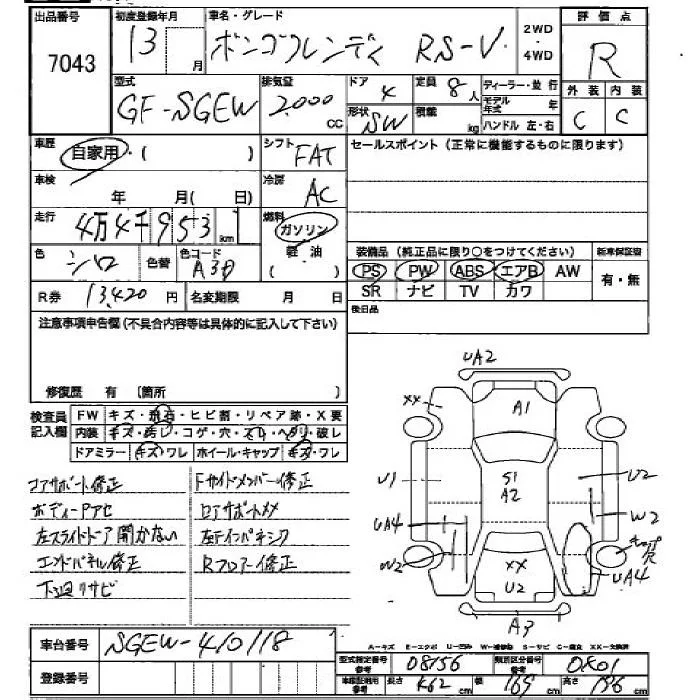 出品番号 初度登録年月 車名・グレード 評価点
7043 13 月 ボンゴフレンディ RS-V 2WD・4WD R
型式 排気量 ドア 定員 ディーラー・並行 外装 内装
GF-SGEW 2,000 cc 4 8人 モデル年式 年 C C
形状 SW 積載 kg ハンドル 左・右
車歴 自家用・( ) シフト FAT セールスポイント(正常に機能するものに限ります)
車検 年 月( 日) 冷房 AC
走行 4万4千953 km 燃料 ガソリン 軽油 ( )
色 シロ 色替 色コード 装備品(純正品に限り○をつけてください) 新車保証書
PS PW ABS エアB AW 有・無
R券 13,420 円 名変期限 月 日 SR ナビ TV カワ
注意事項申告欄(不具合内容等は具体的に記入して下さい) 後日品
修復歴 有 〔箇所 〕
検査員記入欄 FW キズ・飛石・ヒビ割・リペア跡・X要
内装 キズ・汚れ・コゲ・穴・スレ・ヘタリ・破レ
ドアミラー キズ・ワレ ホイール・キャップ キズ・ワレ
コアサポート修正 Fサイドメンバー修正
左スライドドア開かない
エンドパネル修正 Rフロアー修正
下廻リサビ
UA2
XX A1
U1 S1 A2 U2
UA4 W2
W2 XX U2 UA4
A3
車台番号 SGEW-410118
A-キズ E-エクボ U-凹み W-補修跡 S-サビ C-腐食 XX-交換済
登録番号 型式指定番号 参考 08156 類別区分番号 参考 0K01
車庫証明用 参考 長さ 462 cm 幅 169 cm 高さ 196 cm